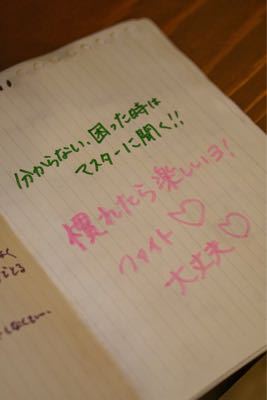 分からない、困った時は
マスターに聞く!!
慣れたら楽しいヨ!
ファイト♡
大丈夫♡